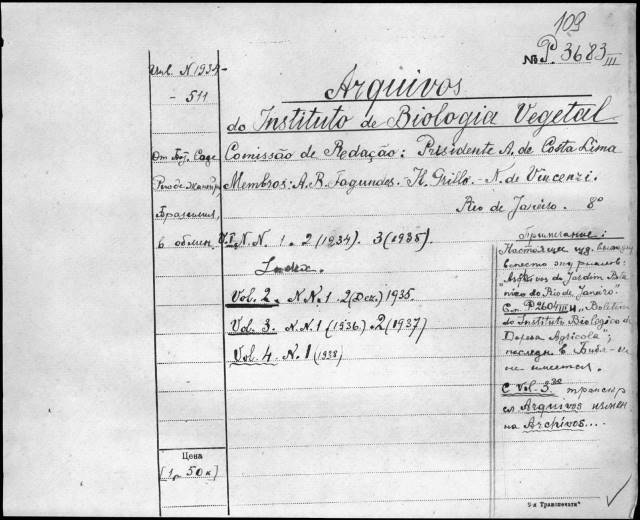 109
№ P. 3683 III
Инв. N 1934-
- 511
Arquivos
do Instituto de Biologia Vegetal
От Бот. Сада
Comissão de Redação: Presidente A. de Costa Lima
Рио де Жанейро,
Membros: A. B. Fagundes. - H. Grillo. - N. de Vincenzi.
Бразилия,
Rio de Janeiro. 8º
в обмен.
V.I, N.N. 1. 2 (1934). 3 (1935).
Index.
Vol. 2. N.N. 1. 2 (Dez.) 1935.
Vol. 3. N.N. 1 (1936). 2 (1937)
Vol. 4. N. 1 (1938)
Примечание:
Настоящее изд. выходит
вместо журналов:
"Archivos do Jardim Bota-
nico do Rio de Janeiro".
См. P 2604 III и "Boletim
do Instituto Biologico de
Defesa Agricola";
последн. в Библ-ке
не имеется.
С Vol. 3
транскр
Arquivos измен.
на Archivos...
Цена
[1 р. 50 к]
5-я Транспечать